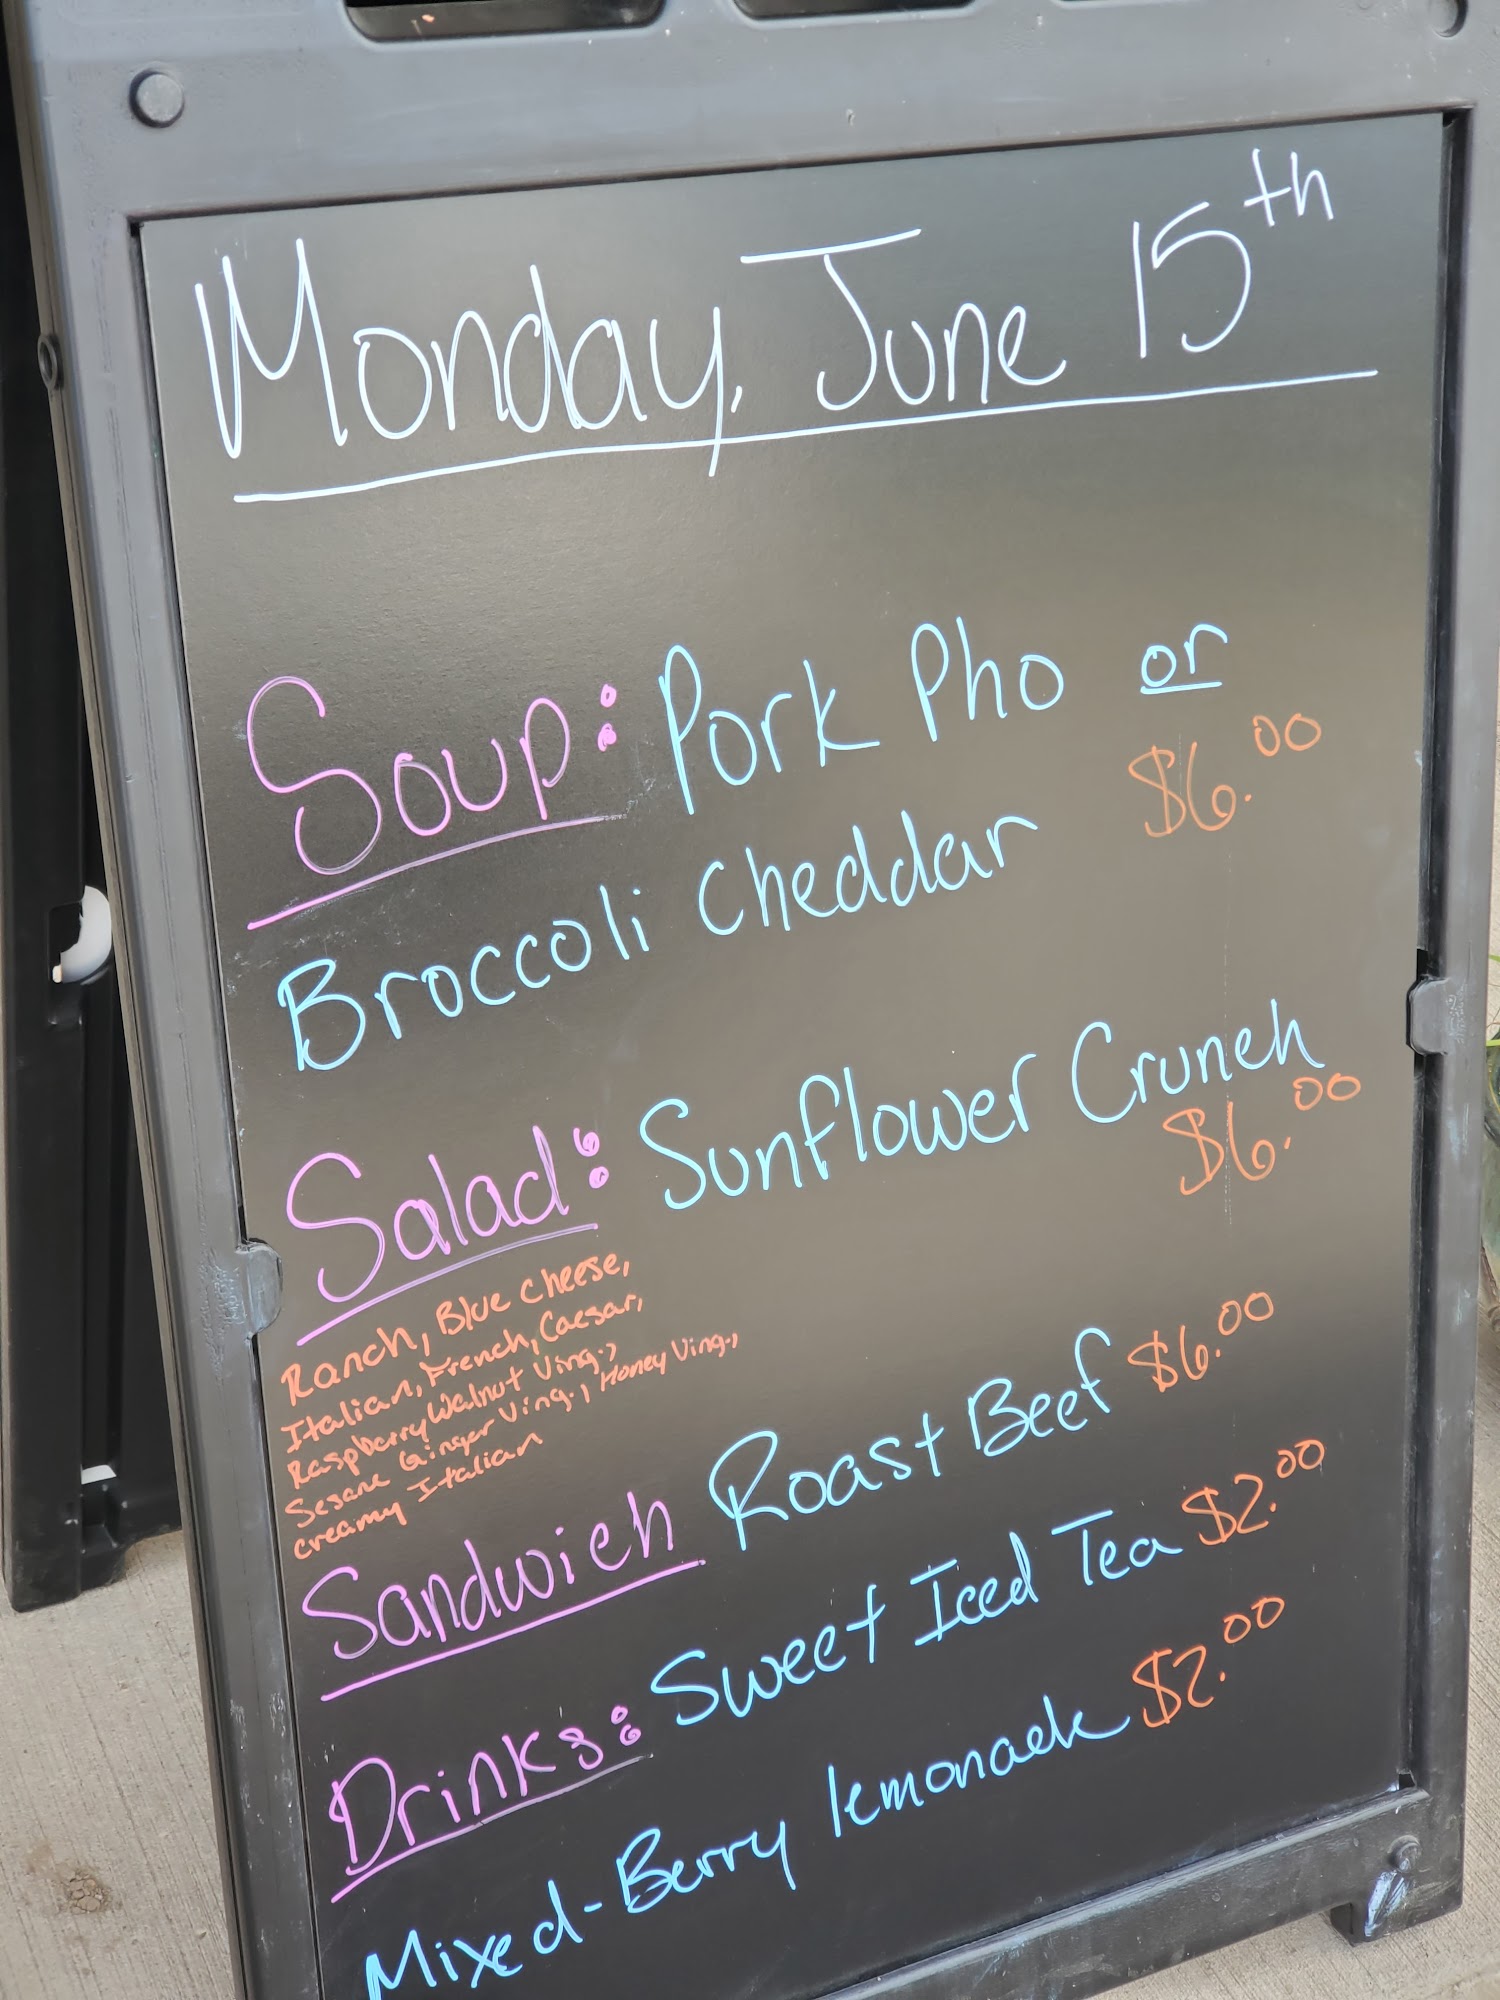 Monday, June 15th
Soup: Pork Pho or
Broccoli Cheddar $6.00
Salad: Sunflower Crunch
$6.00
Ranch, Blue Cheese,
Italian, French, Caesar,
Raspberry Walnut Ving.,
Sesame Ginger Ving., Honey Ving.,
creamy Italian
Sandwich Roast Beef $6.00
Drinks: Sweet Iced Tea $2.00
Mixed-Berry lemonade $2.00